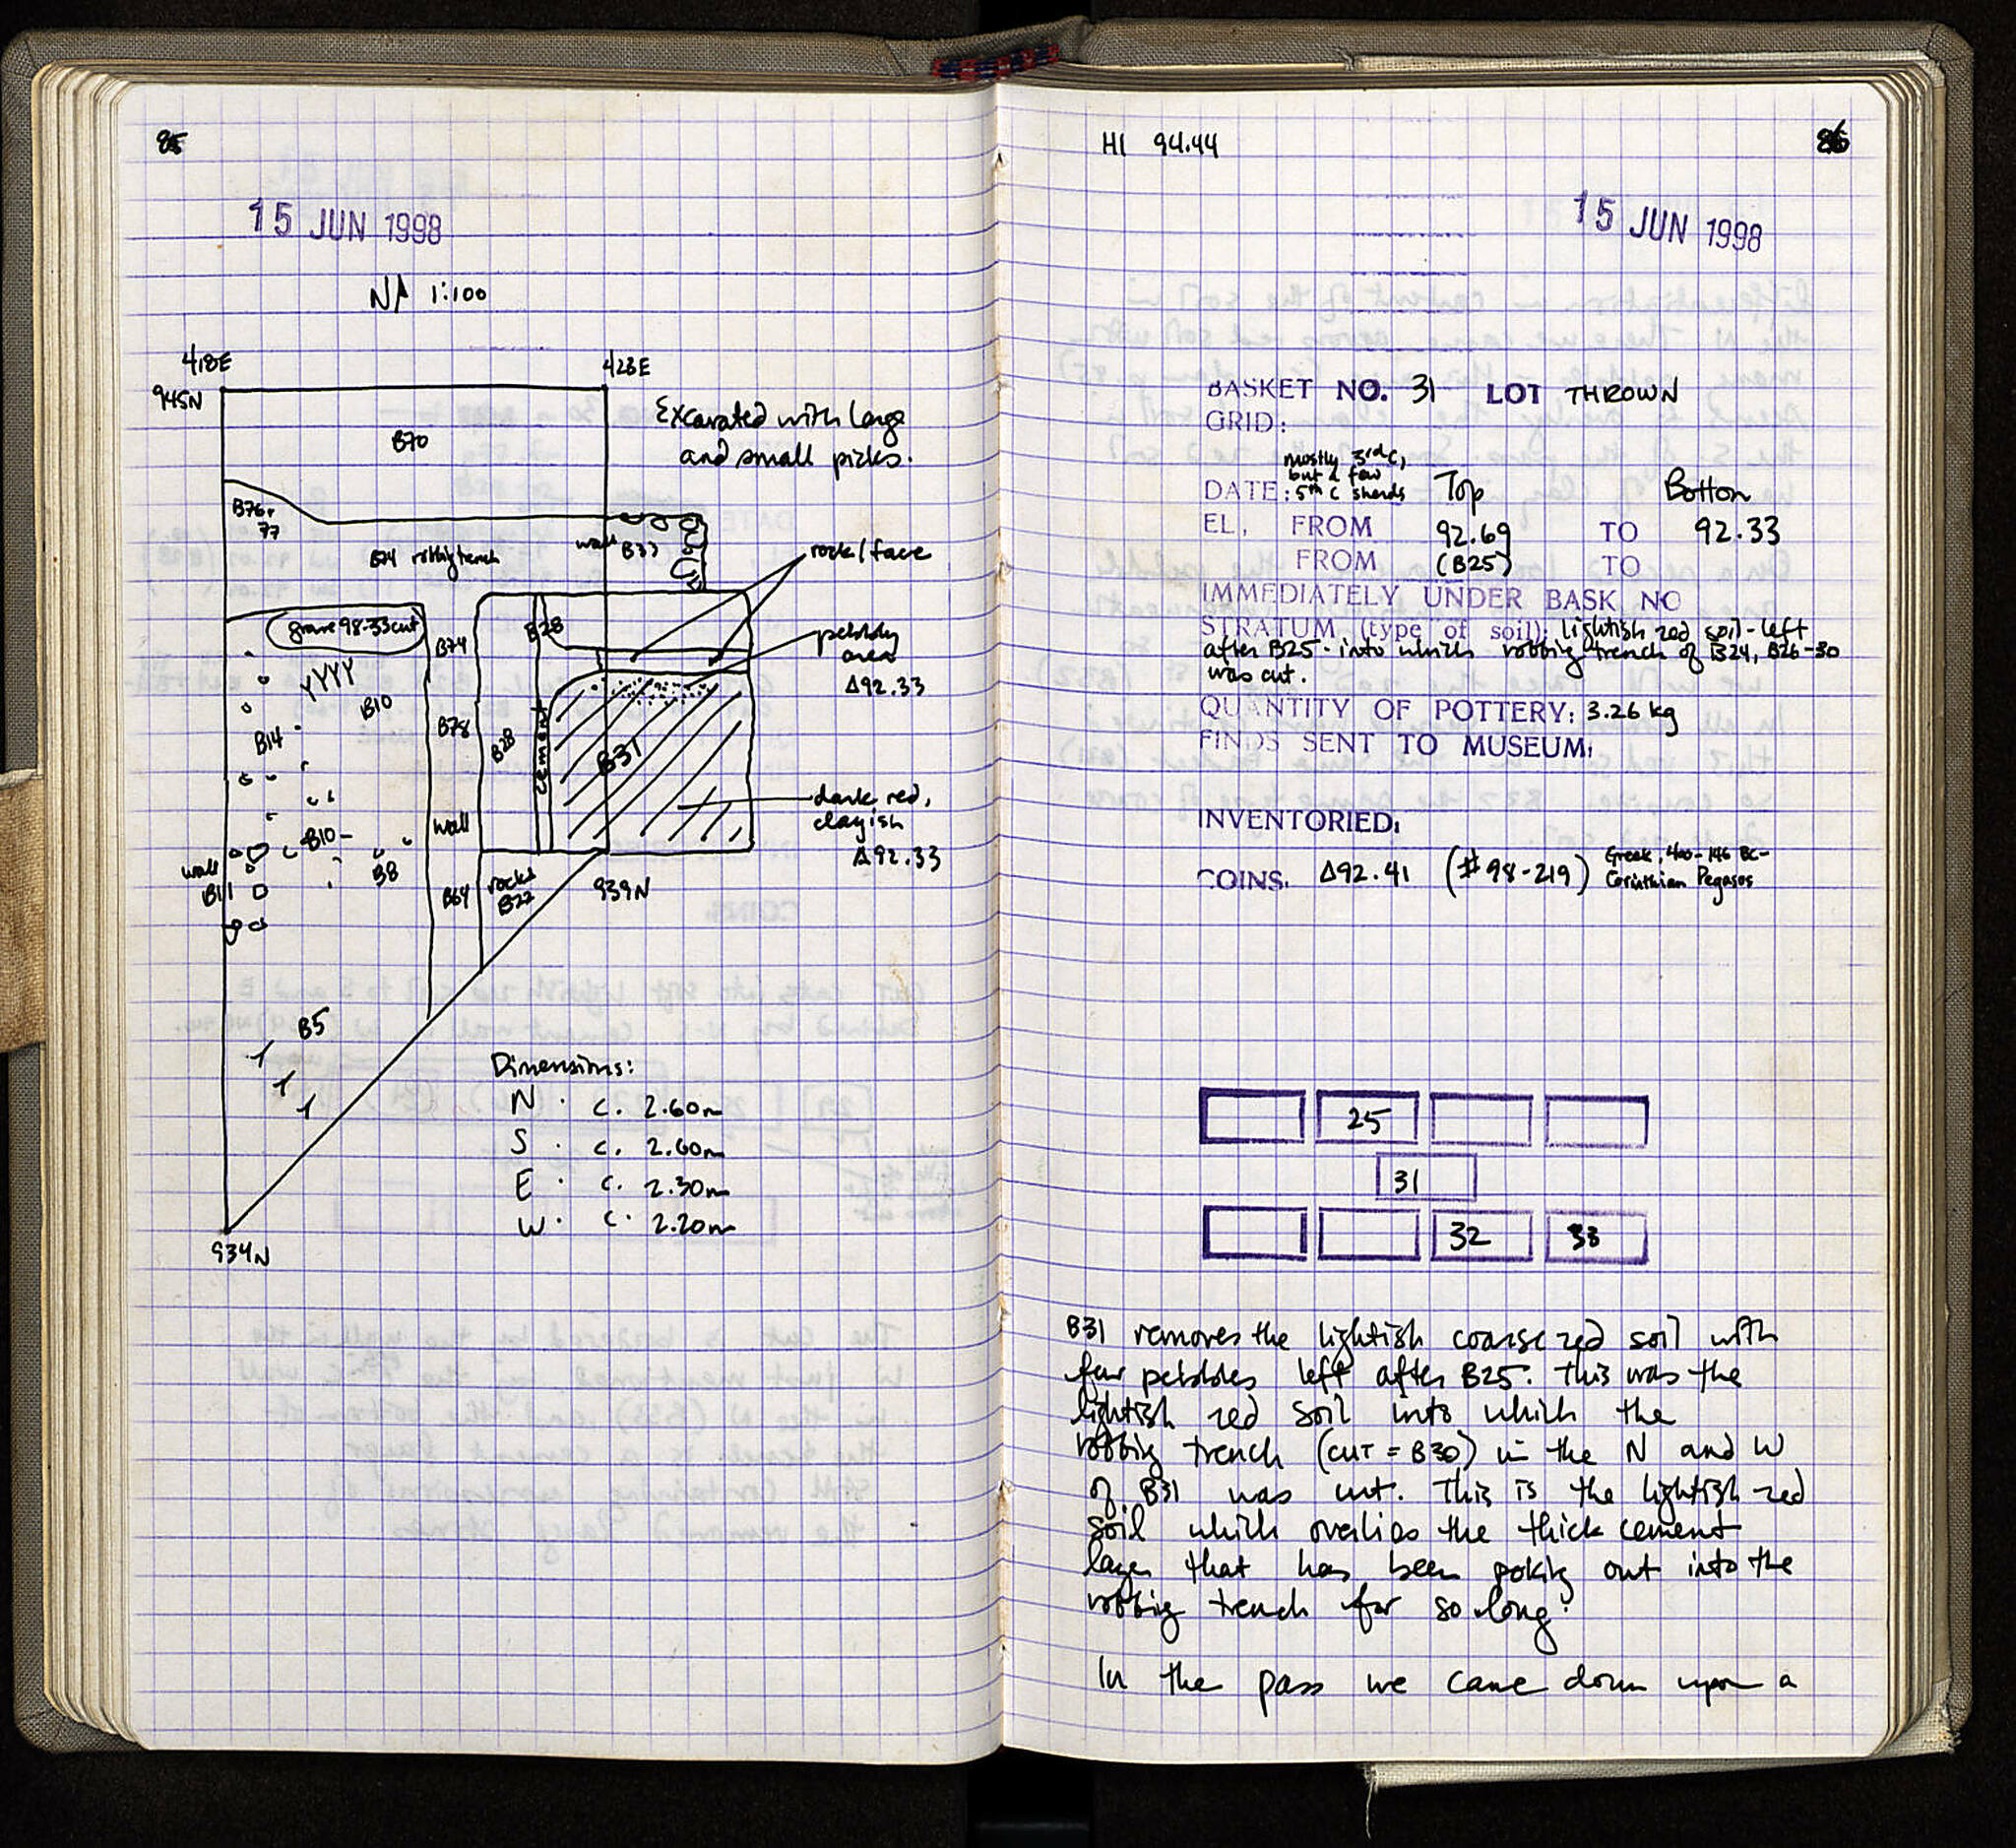 85
15 JUN 1998
N 1:100
418E
423E
945N
B70
Excavated with large
and small picks.
B76+
77
B74 robbing trench
wall B33
rock/face
grave 98-33 cut
B74
B28
pebbly
area
Δ92.33
YYYY
B10
B14
B78
B28
cement
B31
dark red,
clayish
Δ92.33
B10
wall
wall
B11
B8
B64
rocks
B22
939N
B5
Dimensions:
N . c. 2.60m
S . c. 2.60m
E . c. 2.30m
W . c. 2.20m
934N
HI 94.44
86
15 JUN 1998
BASKET NO. 31 LOT THROWN
GRID:
mostly 3rd C,
but a few
DATE: 5th C sherds Top Bottom
EL. FROM 92.69 TO 92.33
FROM (B25) TO
IMMEDIATELY UNDER BASK NO
STRATUM (type of soil): lightish red soil - left
after B25 - into which robbing trench of B24, B26-30
was cut.
QUANTITY OF POTTERY: 3.26 kg
FINDS SENT TO MUSEUM:
INVENTORIED:
COINS. Δ92.41 (#98-219) Greek, 400-146 BC-
Corinthian Pegasos
25
31
32 33
B31 removes the lightish coarse red soil with
few pebbles left after B25. This was the
lightish red soil into which the
robbing trench (cut = B30) in the N and W
of B31 was cut. This is the lightish red
soil which overlies the thick cement
layer that has been poking out into the
robbing trench for so long.
In the pass we came down upon a